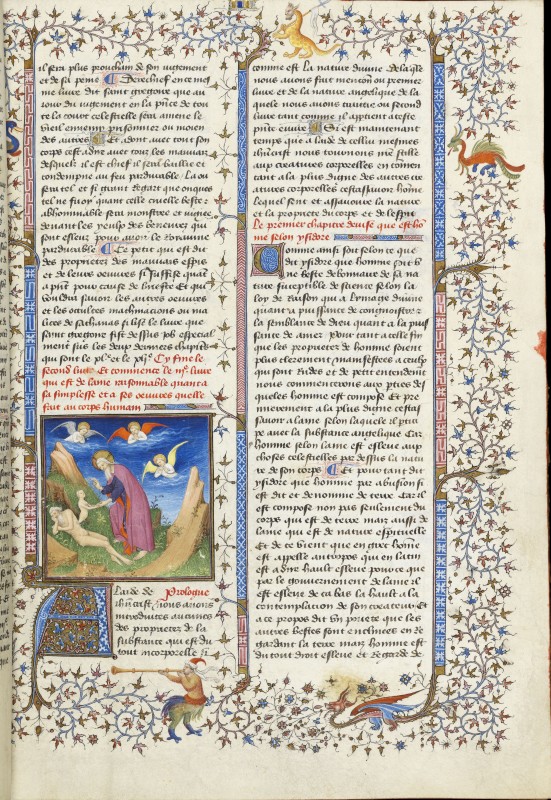 il sera plus prouchain de son iugement
et de sa peine Derechief en ce mes
me liure dit saint gregoire que au
iour du iugement en la pñce de tou
te la court celestielle sera amene
le viel ennemy prisonnier ou moien
des autres Et dont auec tout son
corps cest adire auec tous les mauuais
desquelz il est chief il sera baillie et
condempne au feu pardurable La ou
sera tel et si grant regart que onques
tel ne fu ou quant celle cruelle beste
abhominable sera monstree et mise
deuant les yeulx des beneurez qui
sont esleuz pour auoir le royaume
pardurable Ce petit qui est dit
des proprietez des mauuais esperis
et de leurs oeuures si souffise quant
a pñt pour cause de briefte Et qui
vouldra sauoir les autres oeuures
et les occultes machinacions ou ma
lices de sathanas si lise le liure que
saint gregoire fist dessus iob especial
ment sus les deux derreniers chapitres
qui sont le et le Cy fine le
second liure Et commence le liure
qui est de lame raisonnable quant a
sa simplesse et a ses oeuures quelle
fait au corps humain
Prologue
A laide de
ihucrist nous auons
introduites aucunes
des proprietez de la
substance qui est du
tout incorporelle si
comme est la nature diuine de laquelle
nous auons fait mencion ou premier
liure et de la nature angelique de la
quele nous auons traictie ou second
liure tant comme il appartient a ceste
pñte euure Si est maintenant
temps que a laide de cellui mesmes
ihucrist nous tournons nre stille
aux creatures corporelles en commen
cant a la plus digne des autres cre
atures corporelles cestassauoir homme
lequel sent et assauoure la nature
et la propriete du corps et de lesprit
Le premier chapitre deuise que est hom
me selon ysidore
Comme ainsi soit selon ce que
dit ysidore que homme soit v
ne beste debonnaire de sa na
ture susceptible de science selon la
loy de raison qui a lymage diuine
quant a puissance de congnoistre
la semblance de dieu quant a la puis
sance de amer Pour tant a celle fin
que les proprietez de homme soient
plus clerement manifestees a ceulx
qui sont rudes et de petit entendement
nous commencerons aux parties des
queles homme est compose Et pre
mierement a la plus digne cestas
sauoir a lame selon laquelle il partici
pe auec la substance angelique Car
homme selon lame est esleue aux
choses celestielles par dessus la natu
re de son corps Et pour tant dit
ysidore que homme par abusion si
est dit et denomme de terre car il
est compose non pas seulement du
corps qui est de terre mais aussi de
lame qui est de nature espirituelle
Et de ce vient que en grec homme
est appelle antropos qui en latin
est a dire hault esleue pour ce que
par le gouuernement de lame il
est esleue de ca bas la hault a la
contemplacion de son createur Et
a ce propos dit vn poete que les
autres bestes sont enclinees en re
gardant la terre mais homme est
du tout droit esleue et regarde de